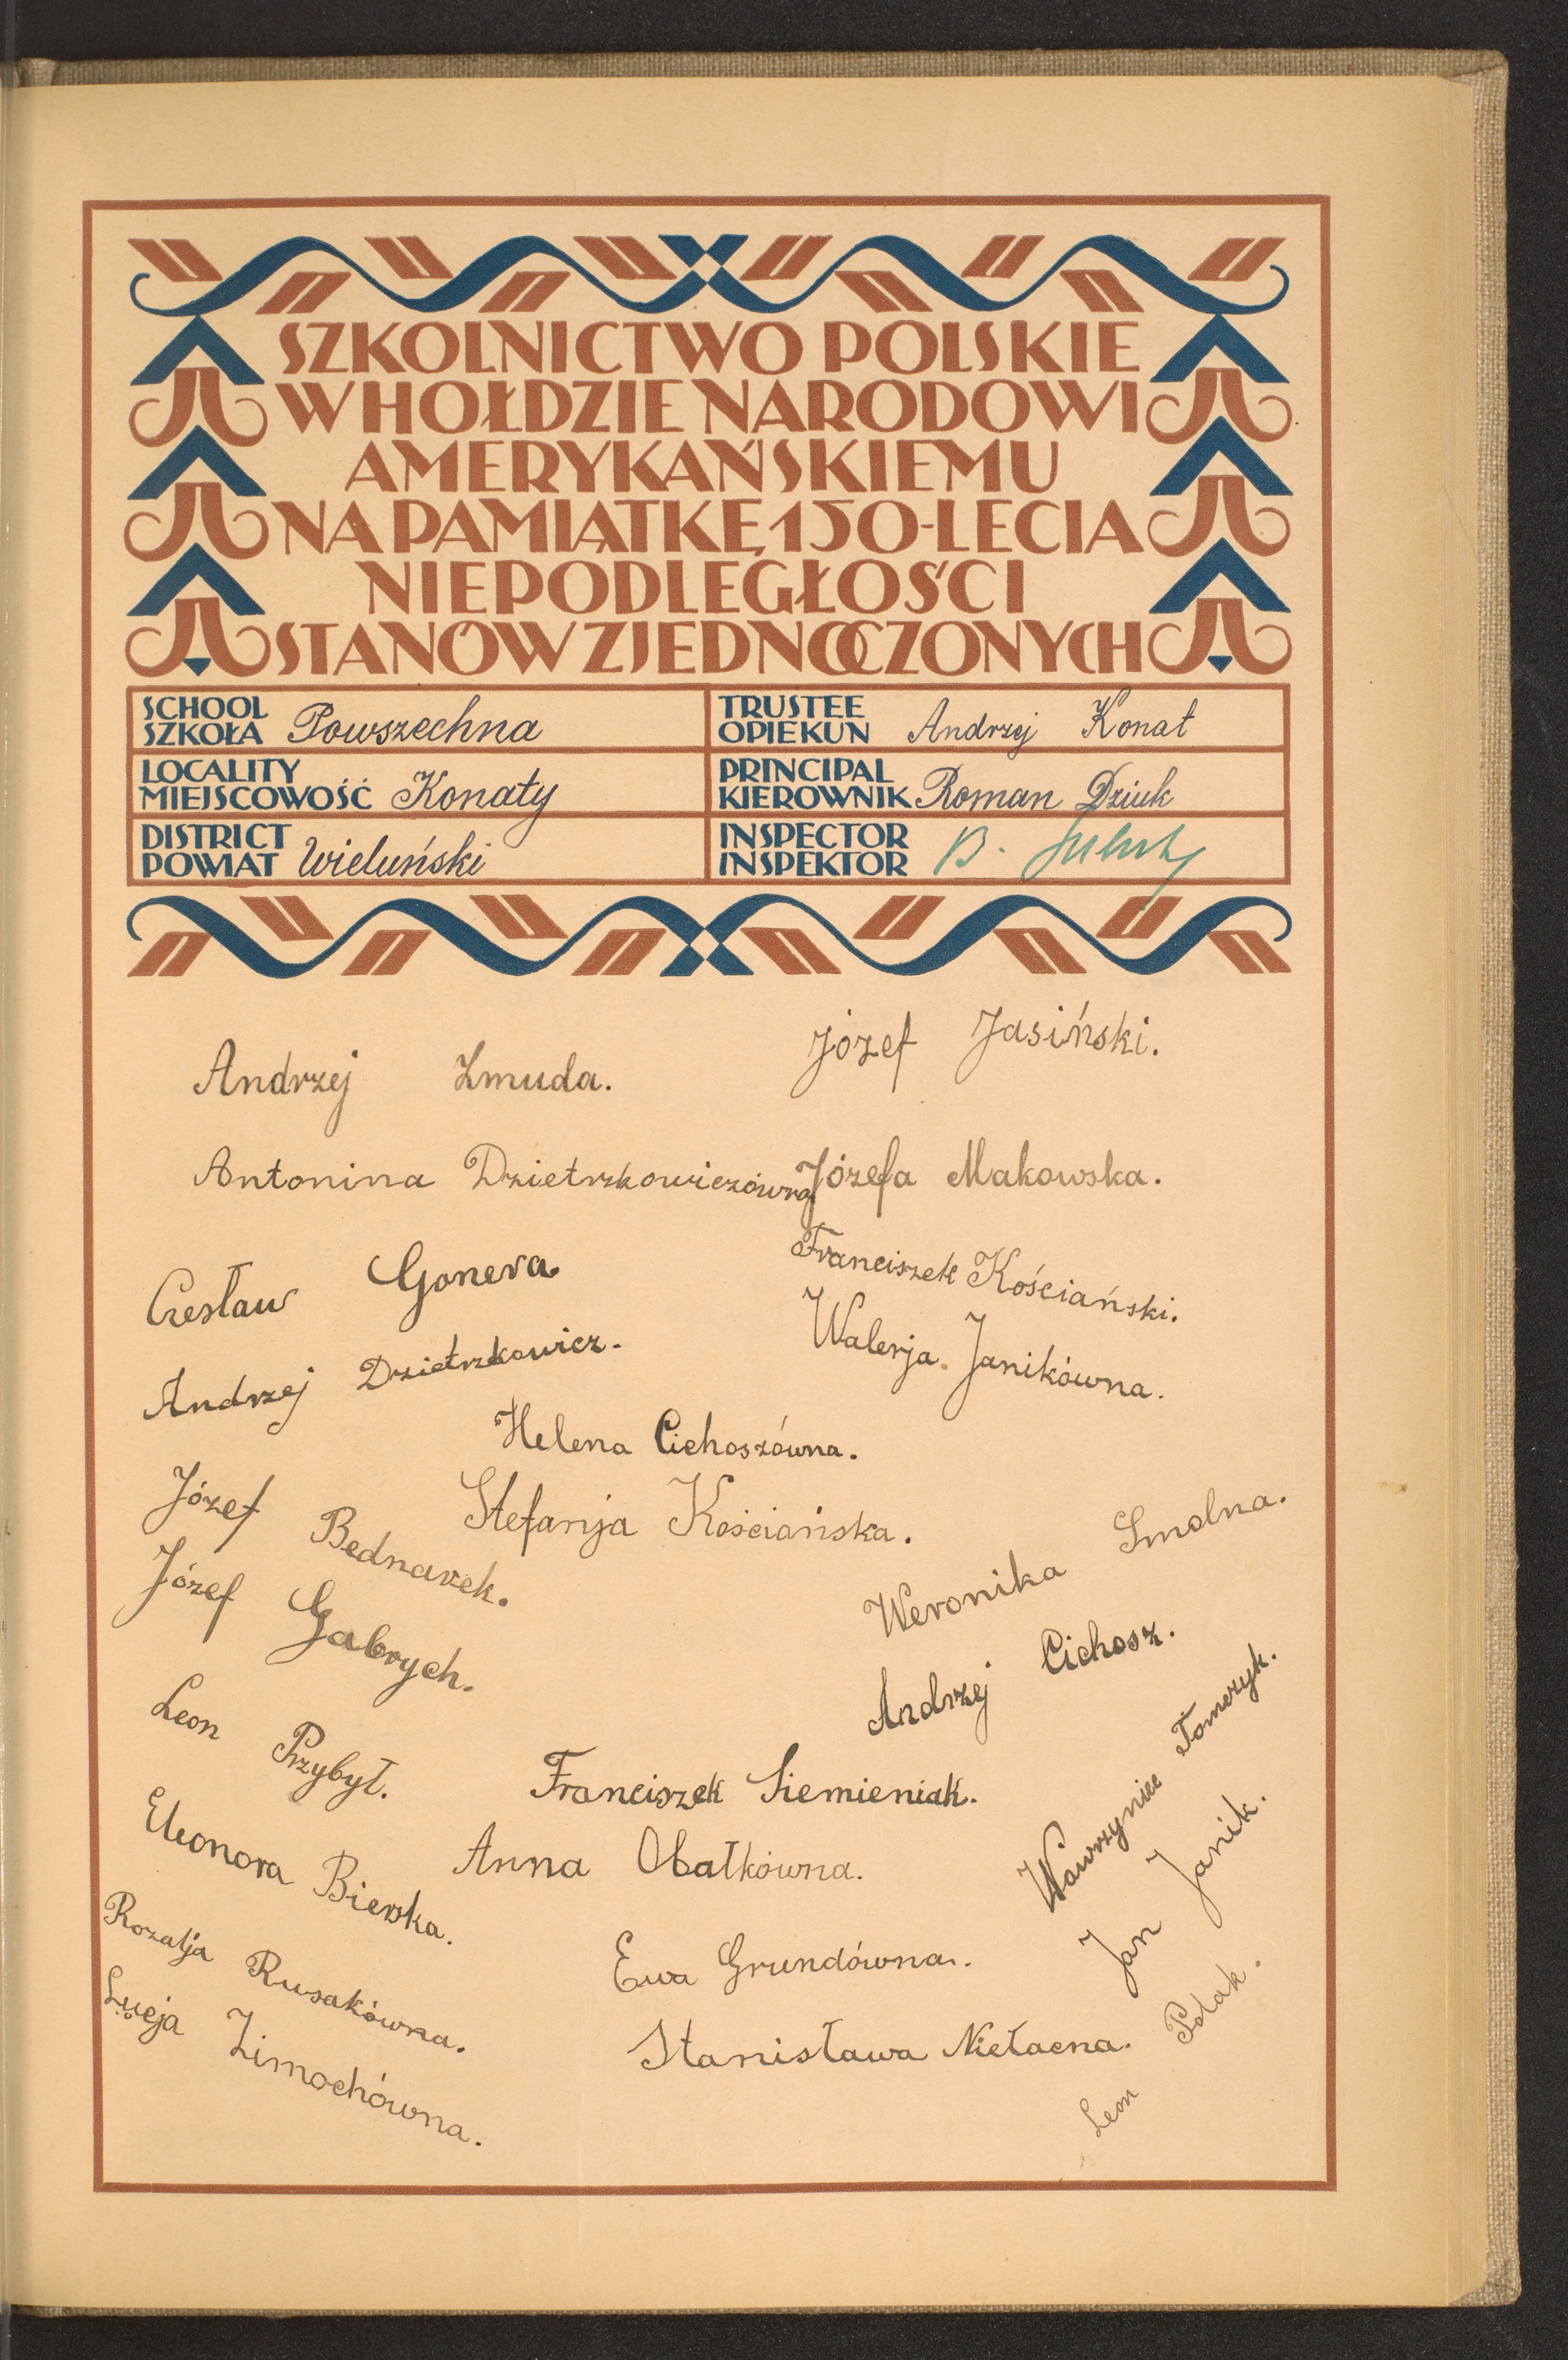 SZKOLNICTWO POLSKIE
W HOŁDZIE NARODOWI
AMERYKAŃSKIEMU
NA PAMIĄTKĘ 150-LECIA
NIEPODLEGŁOŚCI
STANÓW ZJEDNOCZONYCH
SCHOOL
SZKOŁA Powszechna
TRUSTEE
OPIEKUN Andrzej Konat
LOCALITY
MIEJSCOWOŚĆ Konaty
PRINCIPAL
KIEROWNIK Roman Dziuk
DISTRICT
POWIAT Wieluński
INSPECTOR
INSPEKTOR B.
Andrzej Żmuda.
Józef Jasiński.
Antonina Dzietrzkowiczówna
Józefa Makowska.
Czesław Gonera
Franciszek Kościański.
Andrzej Dzietrzkowicz.
Walerja Janikówna.
Helena Cichoszówna.
Józef Bednarek.
Stefanja Kościańska.
Józef Gabrych.
Weronika Smolna.
Andrzej Cichosz.
Leon Przybył.
Franciszek Siemieniak.
Wawrzyniec Tomczyk.
Eleonora Bierska.
Anna Obałkówna.
Jan Janik.
Rozalja Rusakówna.
Ewa Grundówna.
Łucja Zimochówna.
Stanisława Nietacna.
Leon Polak.